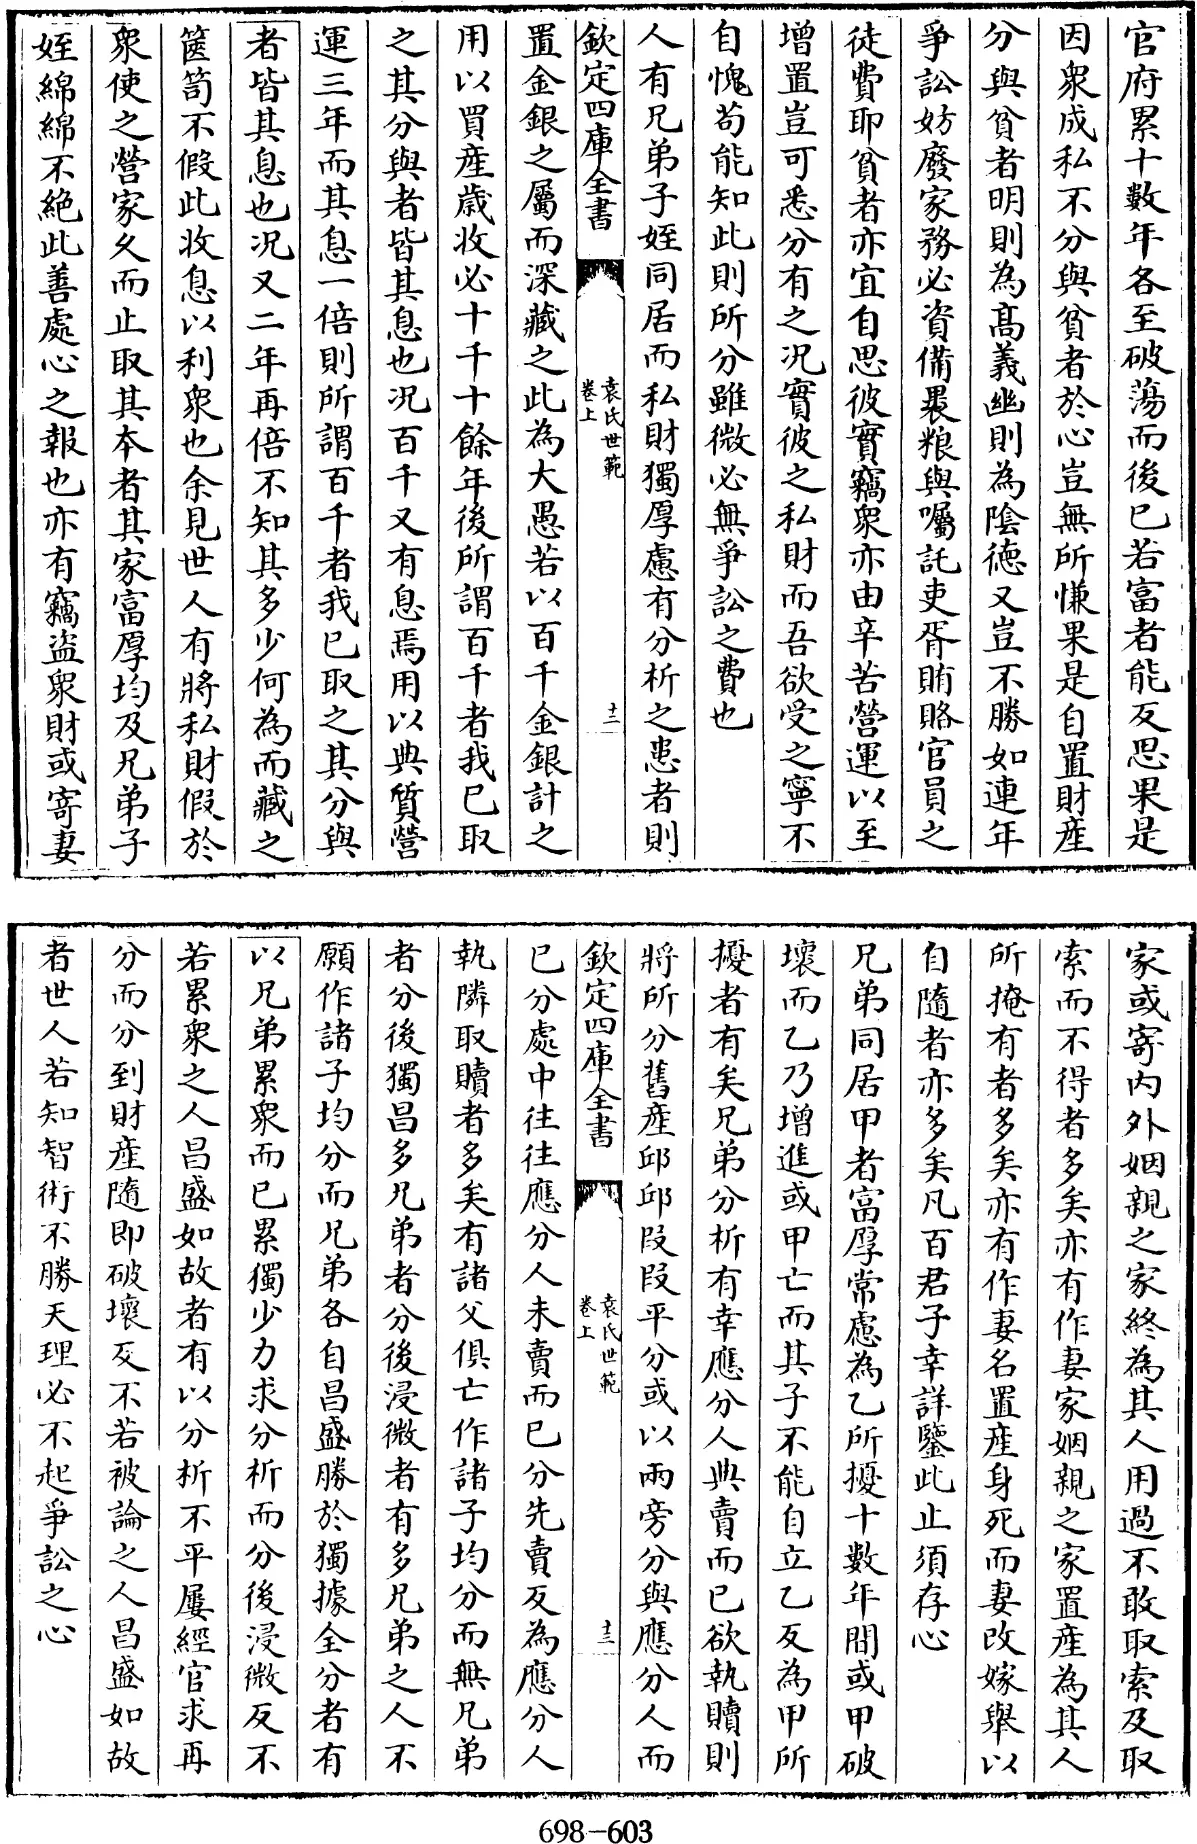 官府累十數年各至破蕩而後已若富者能反思果是
因衆成私不分與貧者於心豈無所慊果是自置財産
分與貧者明則為髙義幽則為陰德又豈不勝如連年
爭訟妨廢家務必資備裹粮與囑託吏胥賄賂官員之
徒費耶貧者亦宜自思彼實竊衆亦由辛苦營運以至
增置豈可悉分有之况實彼之私財而吾欲受之寧不
自愧苟能知此則所分雖微必無爭訟之費也
人有兄弟子姪同居而私財獨厚慮有分析之患者則
欽定四庫全書
袁氏世範
卷上
十二
置金銀之屬而深藏之此為大愚若以百千金銀計之
用以買産歳收必十千十餘年後所謂百千者我已取
之其分與者皆其息也况百千又有息焉用以典質營
運三年而其息一倍則所謂百千者我已取之其分與
者皆其息也况又二年再倍不知其多少何為而藏之
篋笥不假此收息以利衆也余見世人有將私財假於
衆使之營家久而止取其本者其家富厚均及兄弟子
姪綿綿不絶此善處心之報也亦有竊盜衆財或寄妻
家或寄内外姻親之家終為其人用過不敢取索及取
索而不得者多矣亦有作妻家姻親之家置産為其人
所掩有者多矣亦有作妻名置産身死而妻改嫁舉以
自隨者亦多矣凡百君子幸詳鑒此止須存心
兄弟同居甲者富厚常慮為乙所擾十數年間或甲破
壞而乙乃增進或甲亡而其子不能自立乙反為甲所
擾者有矣兄弟分析有幸應分人典賣而已欲執贖則
將所分舊産邱邱段段平分或以兩旁分與應分人而
欽定四庫全書
袁氏世範
卷上
十三
已分處中往往應分人未賣而已分先賣反為應分人
執隣取贖者多矣有諸父俱亡作諸子均分而無兄弟
者分後獨昌多兄弟者分後浸微者有多兄弟之人不
願作諸子均分而兄弟各自昌盛勝於獨據全分者有
以兄弟累衆而已累獨少力求分析而分後浸微反不
若累衆之人昌盛如故者有以分析不平屢經官求再
分而分到財産隨即破壞反不若被論之人昌盛如故
者世人若知智術不勝天理必不起爭訟之心
698-603